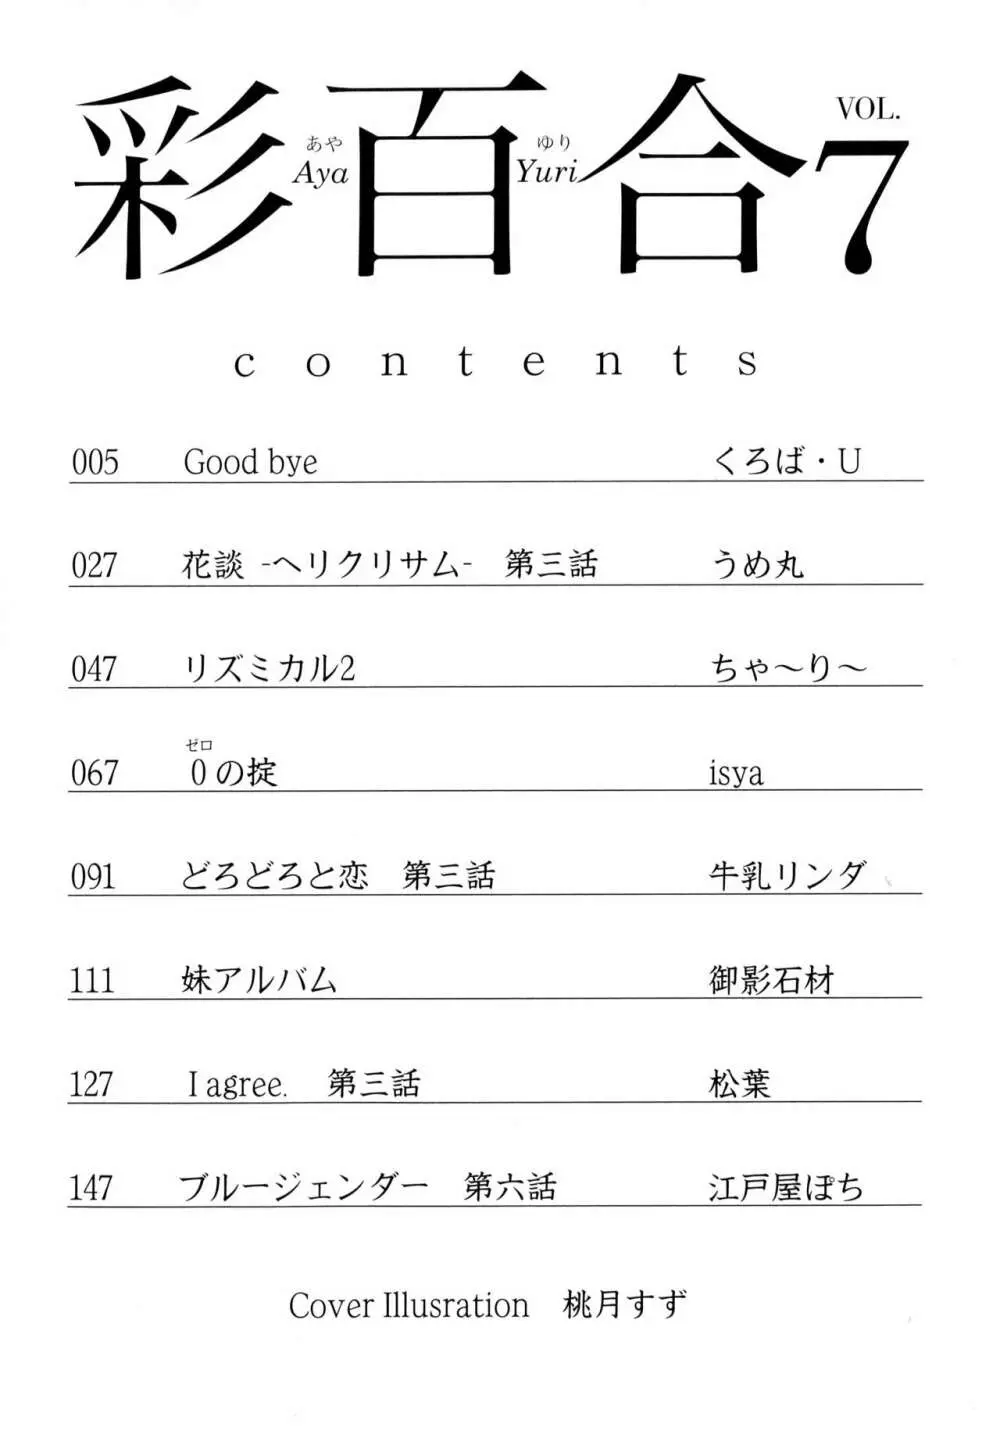 彩百合 VOL. 7
あや ゆり
Aya Yuri
contents
005 Good bye くろば・U
027 花談 -ヘリクリサム- 第三話 うめ丸
047 リズミカル2 ちゃ～り～
ゼロ
067 0の掟 isya
091 どろどろと恋 第三話 牛乳リンダ
111 妹アルバム 御影石材
127 I agree. 第三話 松葉
147 ブルージェンダー 第六話 江戸屋ぽち
Cover Illusration 桃月すず